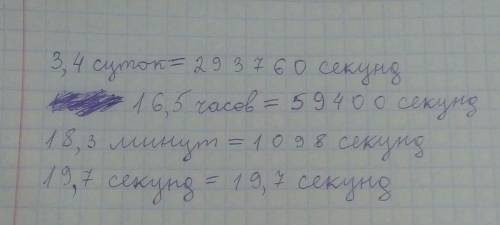 3,4 суток = 293760 секунд
16,5 часов = 59400 секунд
18,3 минут = 1098 секунд
19,7 секунд = 19,7 секунд